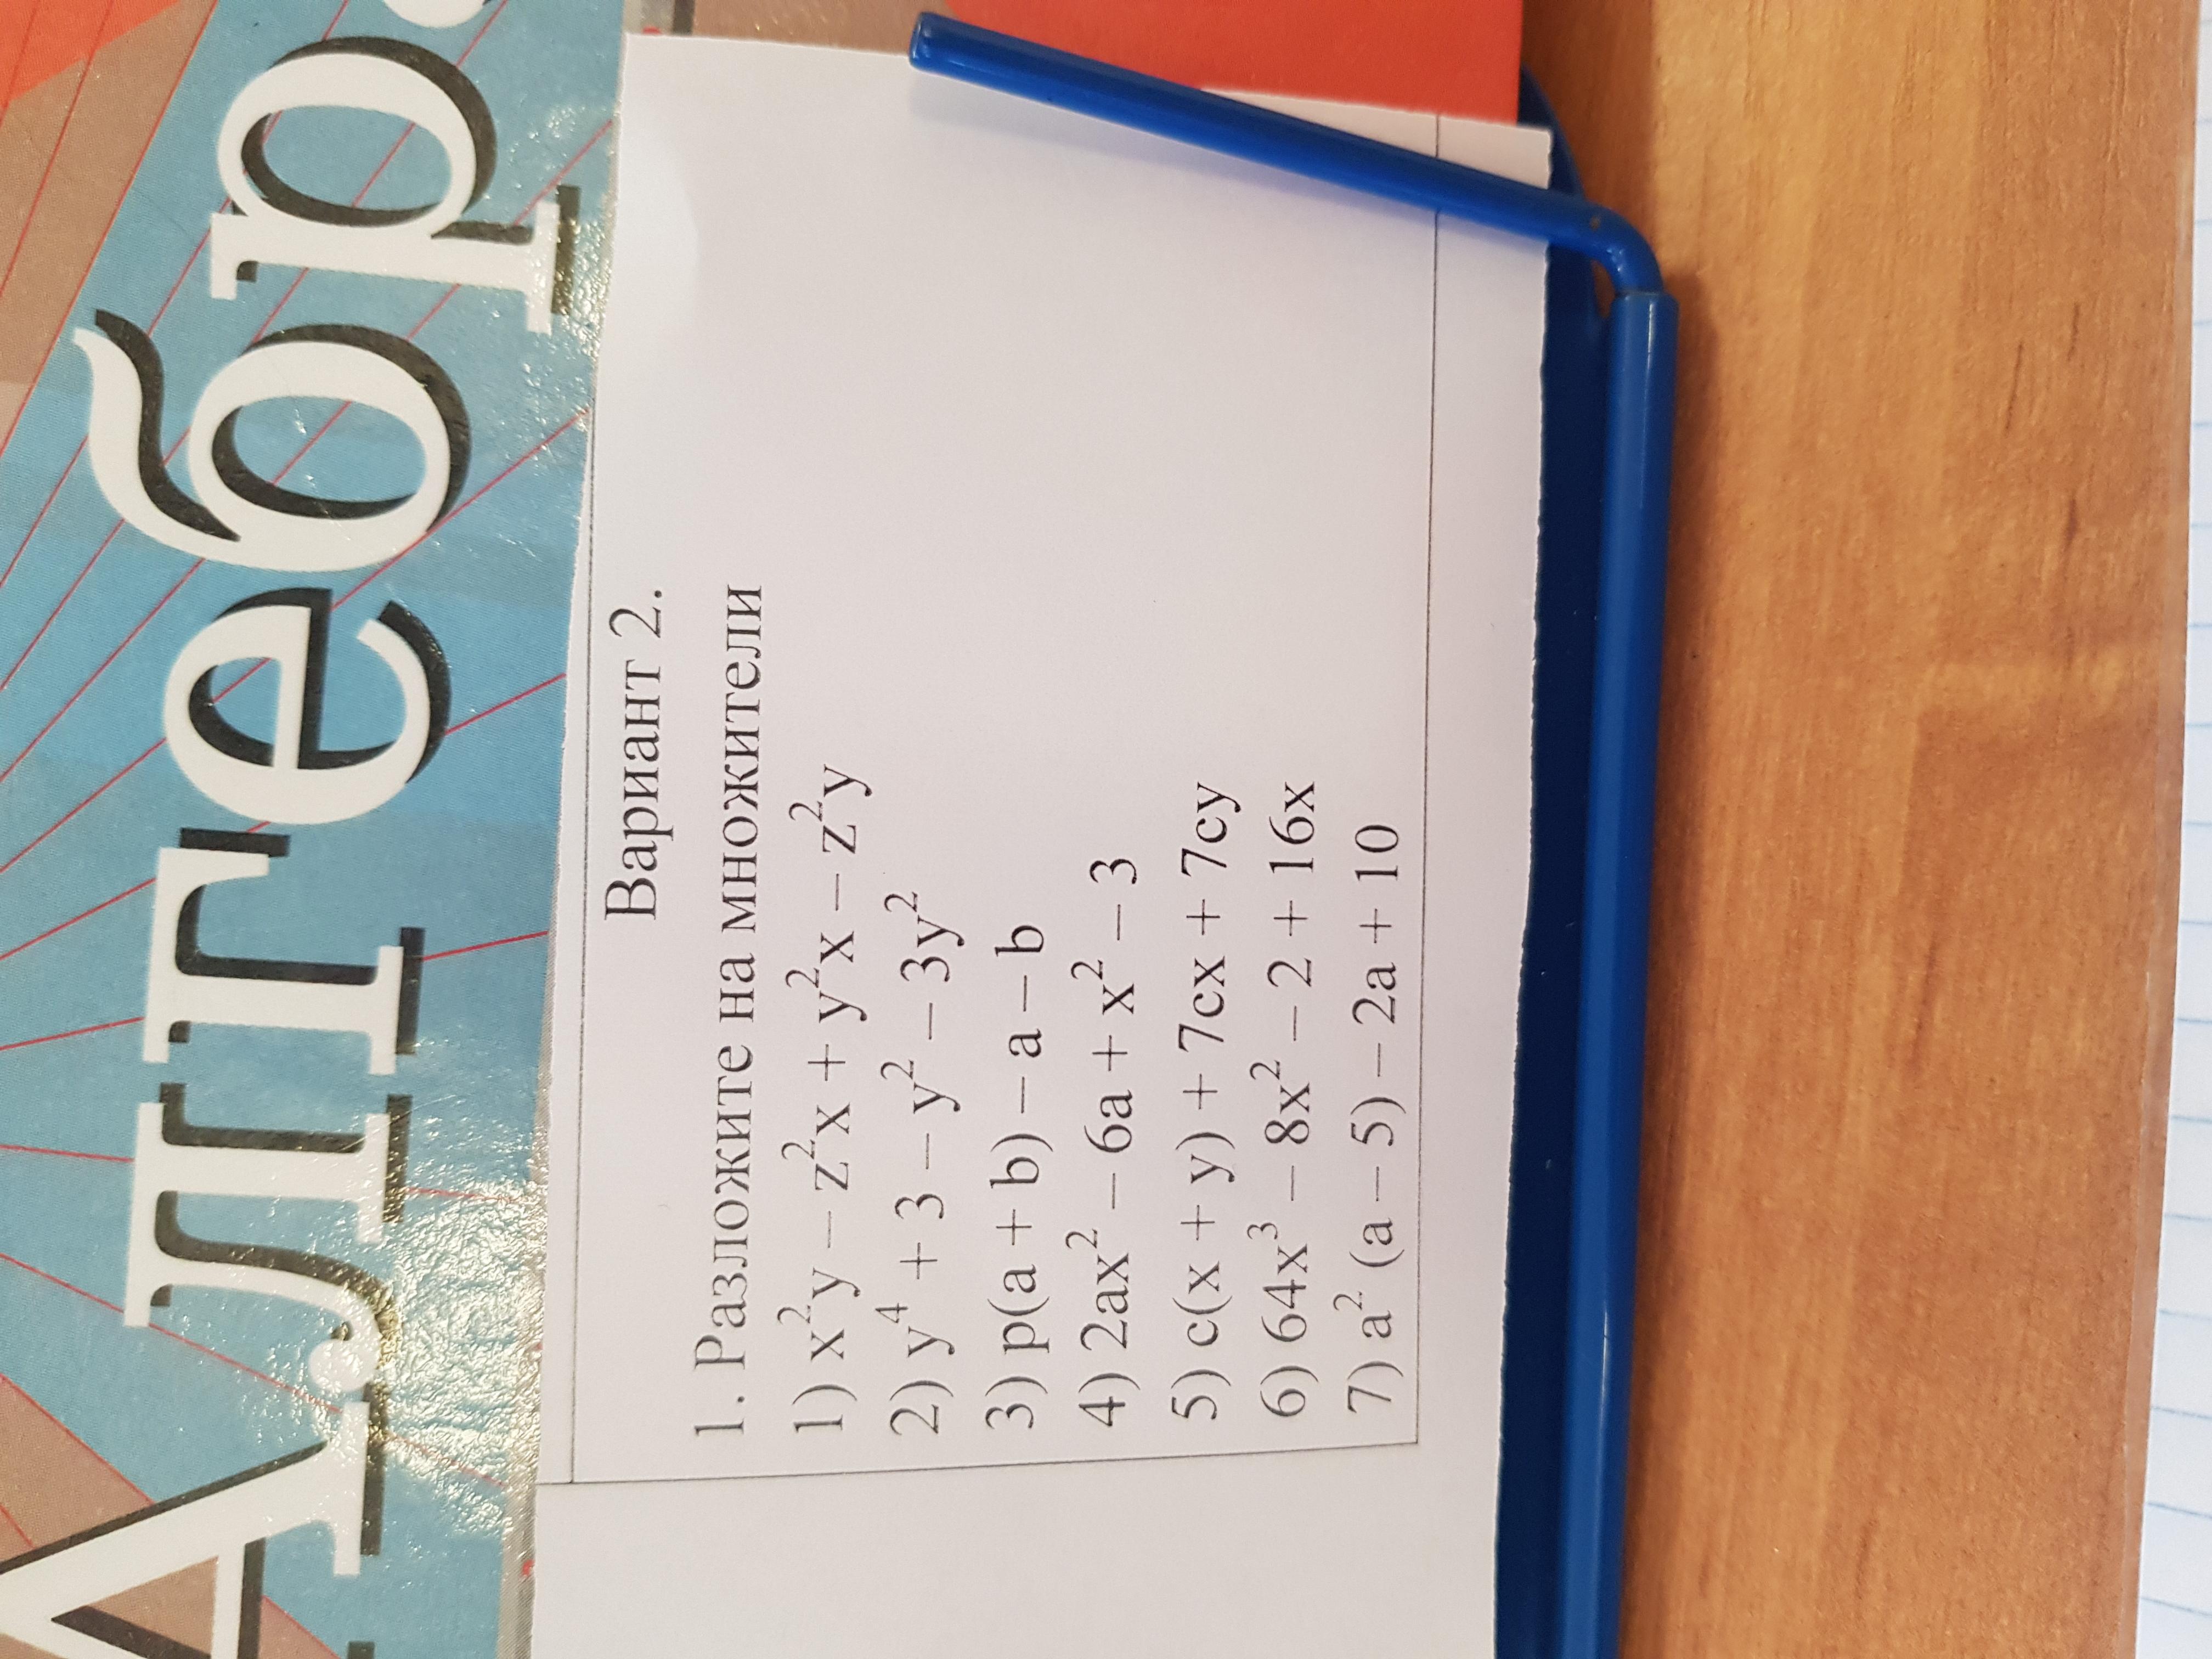 Алгебр
Вариант 2.
1. Разложите на множители
1) x²y – z²x + y²x – z²y
2) y⁴ + 3 – y² – 3y²
3) p(a + b) – a – b
4) 2ax² – 6a + x² – 3
5) c(x + y) + 7cx + 7cy
6) 64x³ – 8x² – 2 + 16x
7) a² (a – 5) – 2a + 10